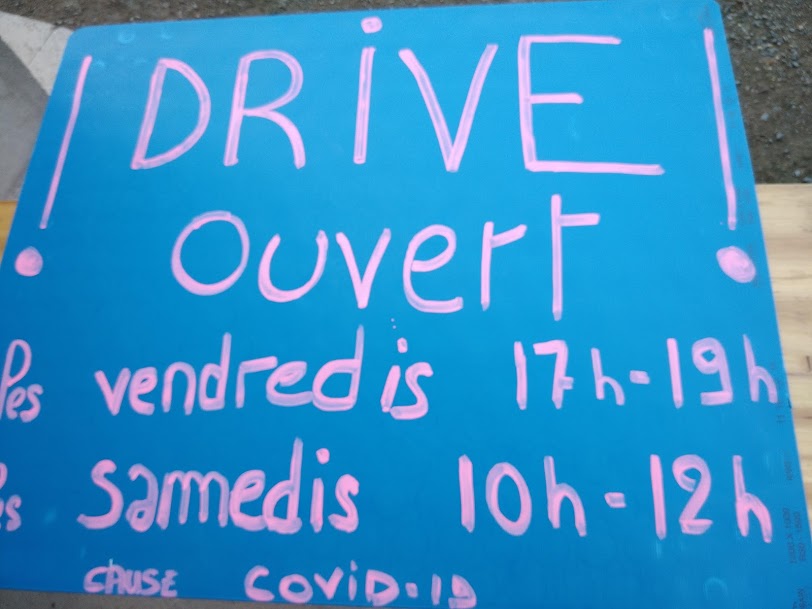 ! DRIVE !
ouvert
les vendredis 17h-19h
les samedis 10h-12h
CAUSE COVID-19